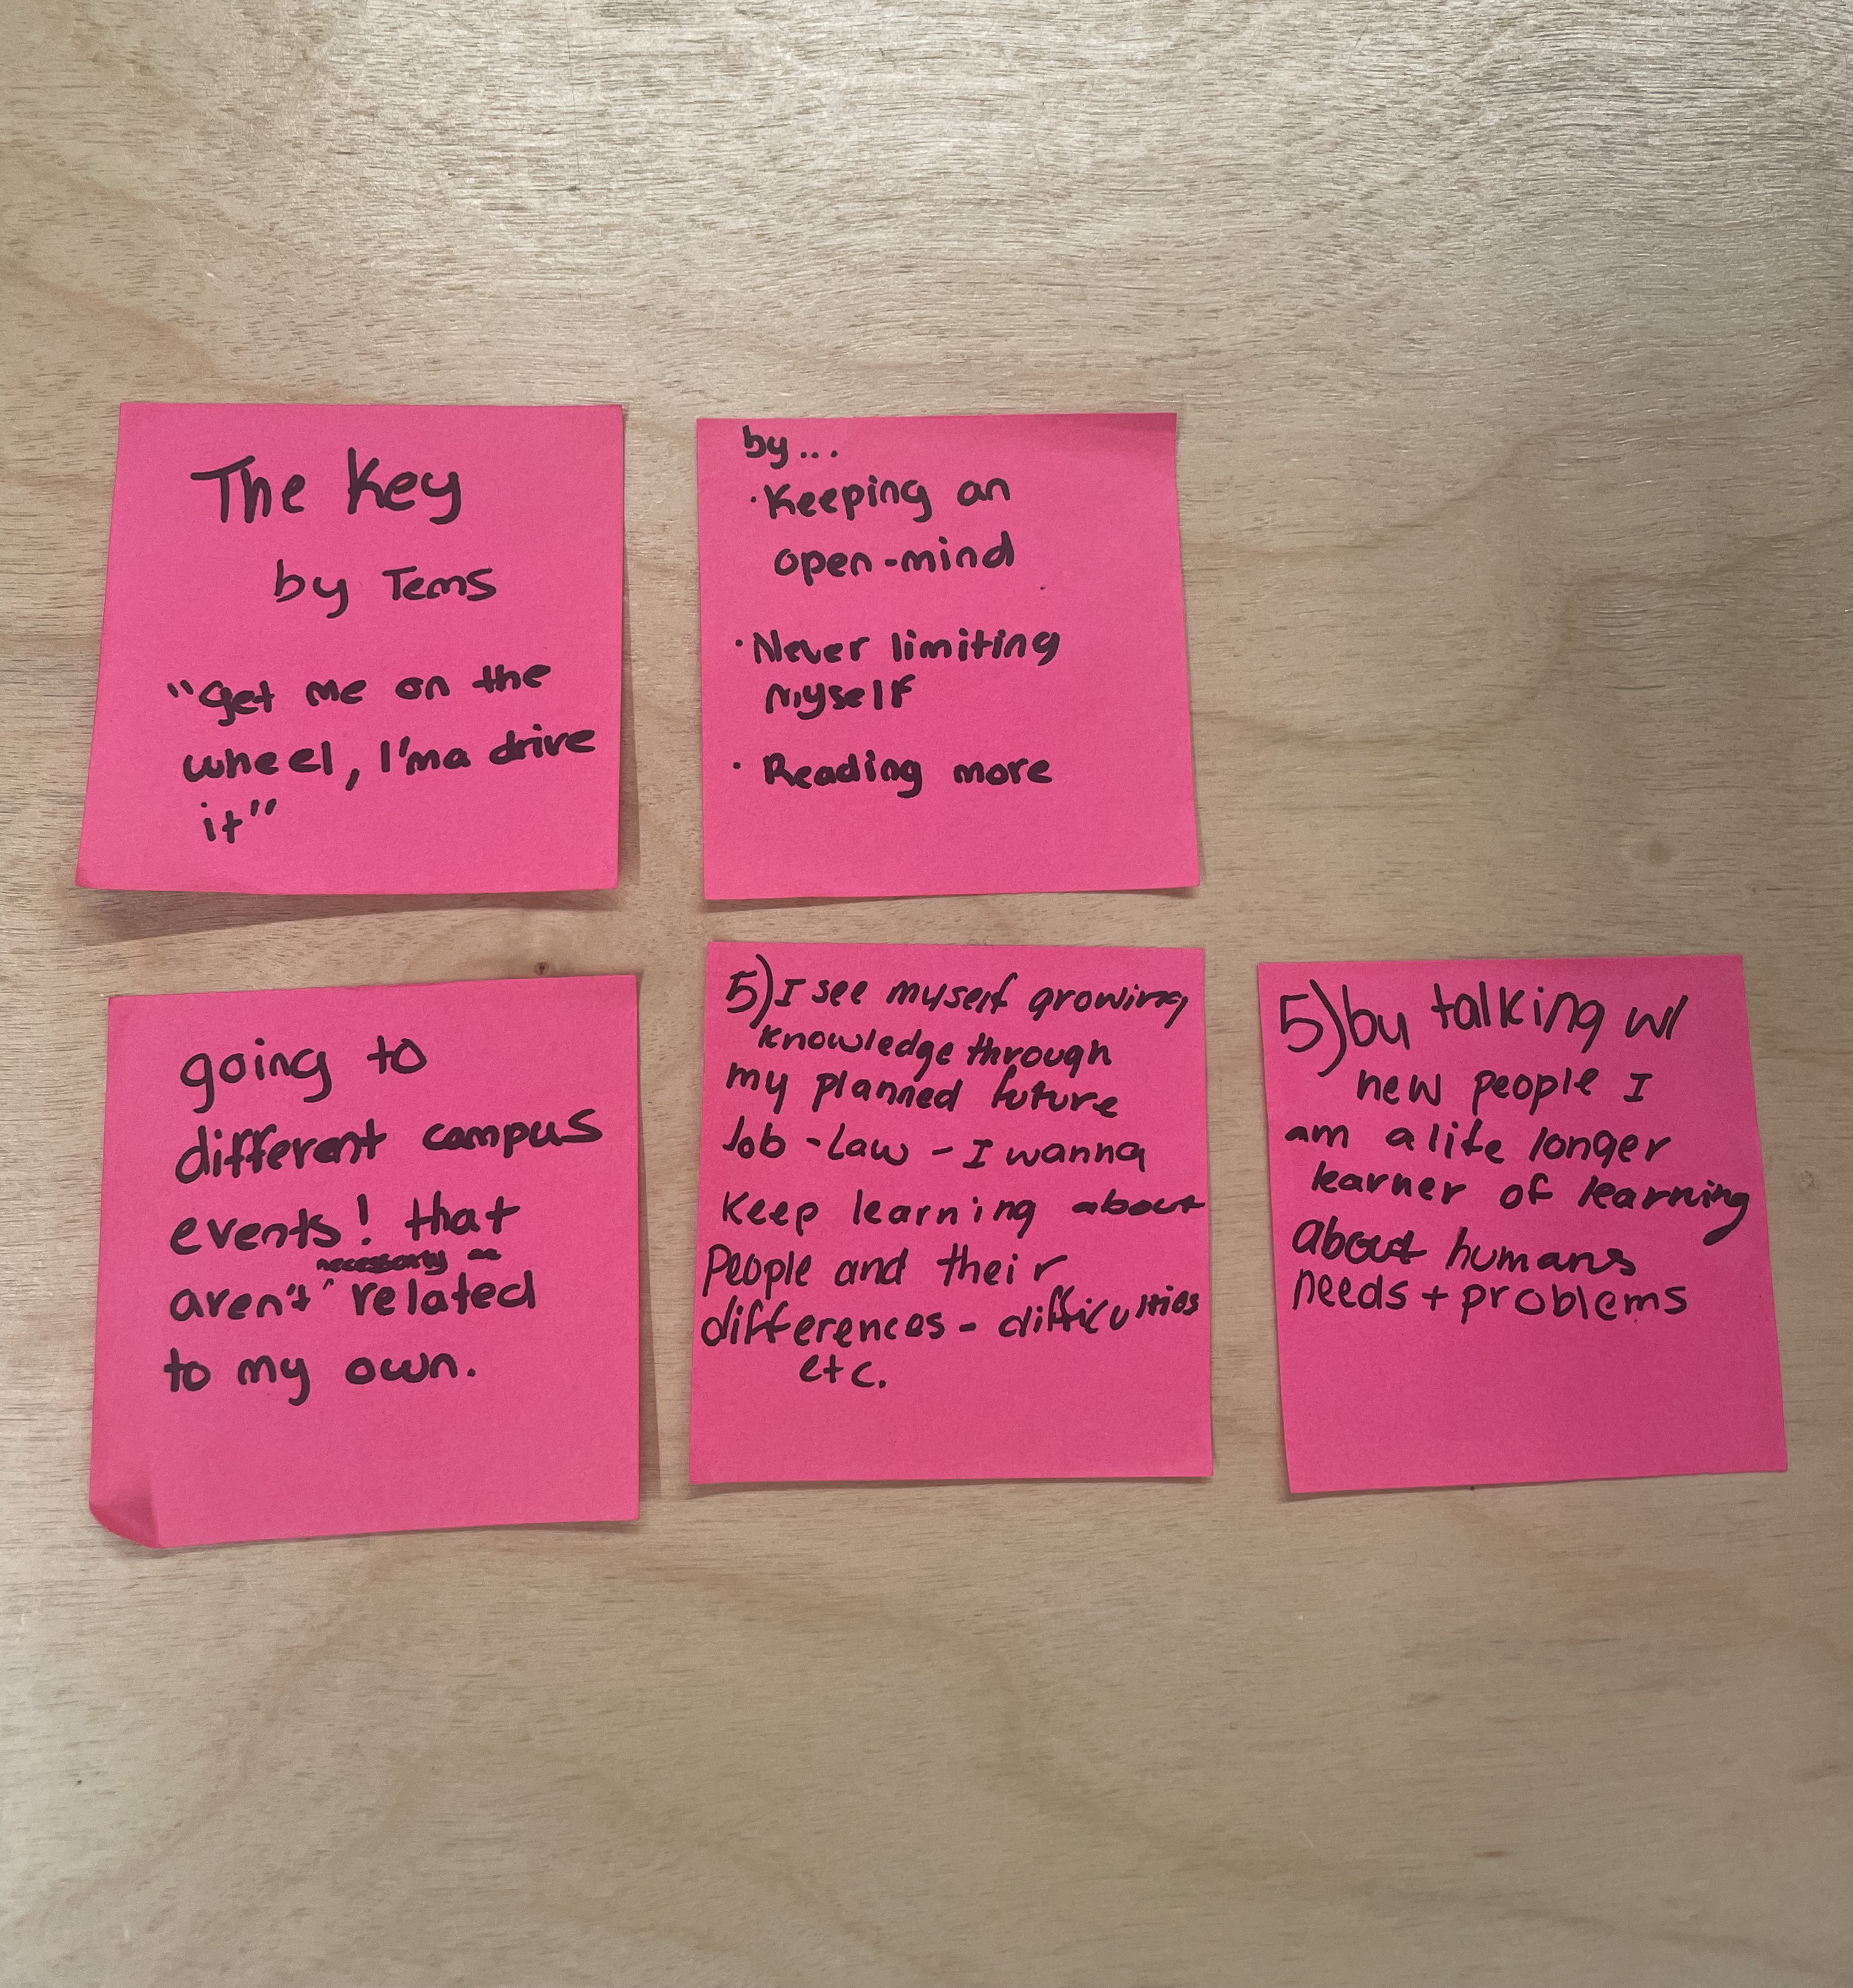 The Key
by Tems
"Get me on the
wheel, I'ma drive
it"
by...
· Keeping an
open-mind
· Never limiting
myself
· Reading more
going to
different campus
events! that
necessarily
aren't ^ related
to my own.
5) I see myself growing
knowledge through
my planned future
Job - Law - I wanna
keep learning about
People and their
differences - difficulties
etc.
5) by talking w/
new people I
am a life longer
learner of learning
about humans
needs + problems